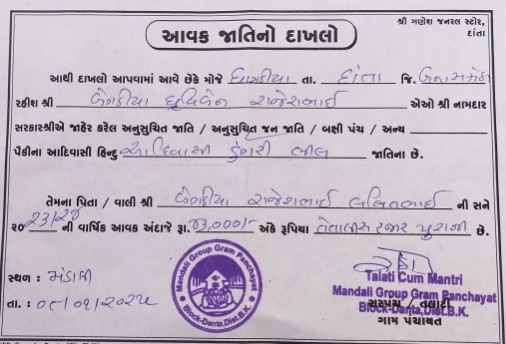 શ્રી ગણેશ જનરલ સ્ટોર, દાંતા
આવક જાતિનો દાખલો
આથી દાખલો આપવામાં આવે છેકે મોજે ધાગડીયા તા. દાંતા જિ. બનાસકાંઠા
રહીશ શ્રી રાજેશભાઈ એઓ શ્રી નામદાર
સરકારશ્રીએ જાહેર કરેલ અનુસુચિત જાતિ / અનુસુચિત જન જાતિ / બક્ષી પંચ / અન્ય
પૈકીના આદિવાસી હિન્દુ આદિવાસી ડુંગરી ભીલ જાતિના છે.
તેમના પિતા / વાલી શ્રી રાજેશભાઈ ની સને
૨૦ 23/24 ની વાર્ષિક આવક અંદાજે રૂા. 43,000/- અંકે રૂપિયા તેતાલીસ હજાર પુરાની છે.
સ્થળ : મંડાલી
તા. :
Mandali Group Gram Panchayat
Block-Danta, Dist.B.K.
Talati Cum Mantri
Mandali Group Gram Panchayat
Block-Danta, Dist.B.K.
સરપંચ / તલાટી
ગામ પંચાયત